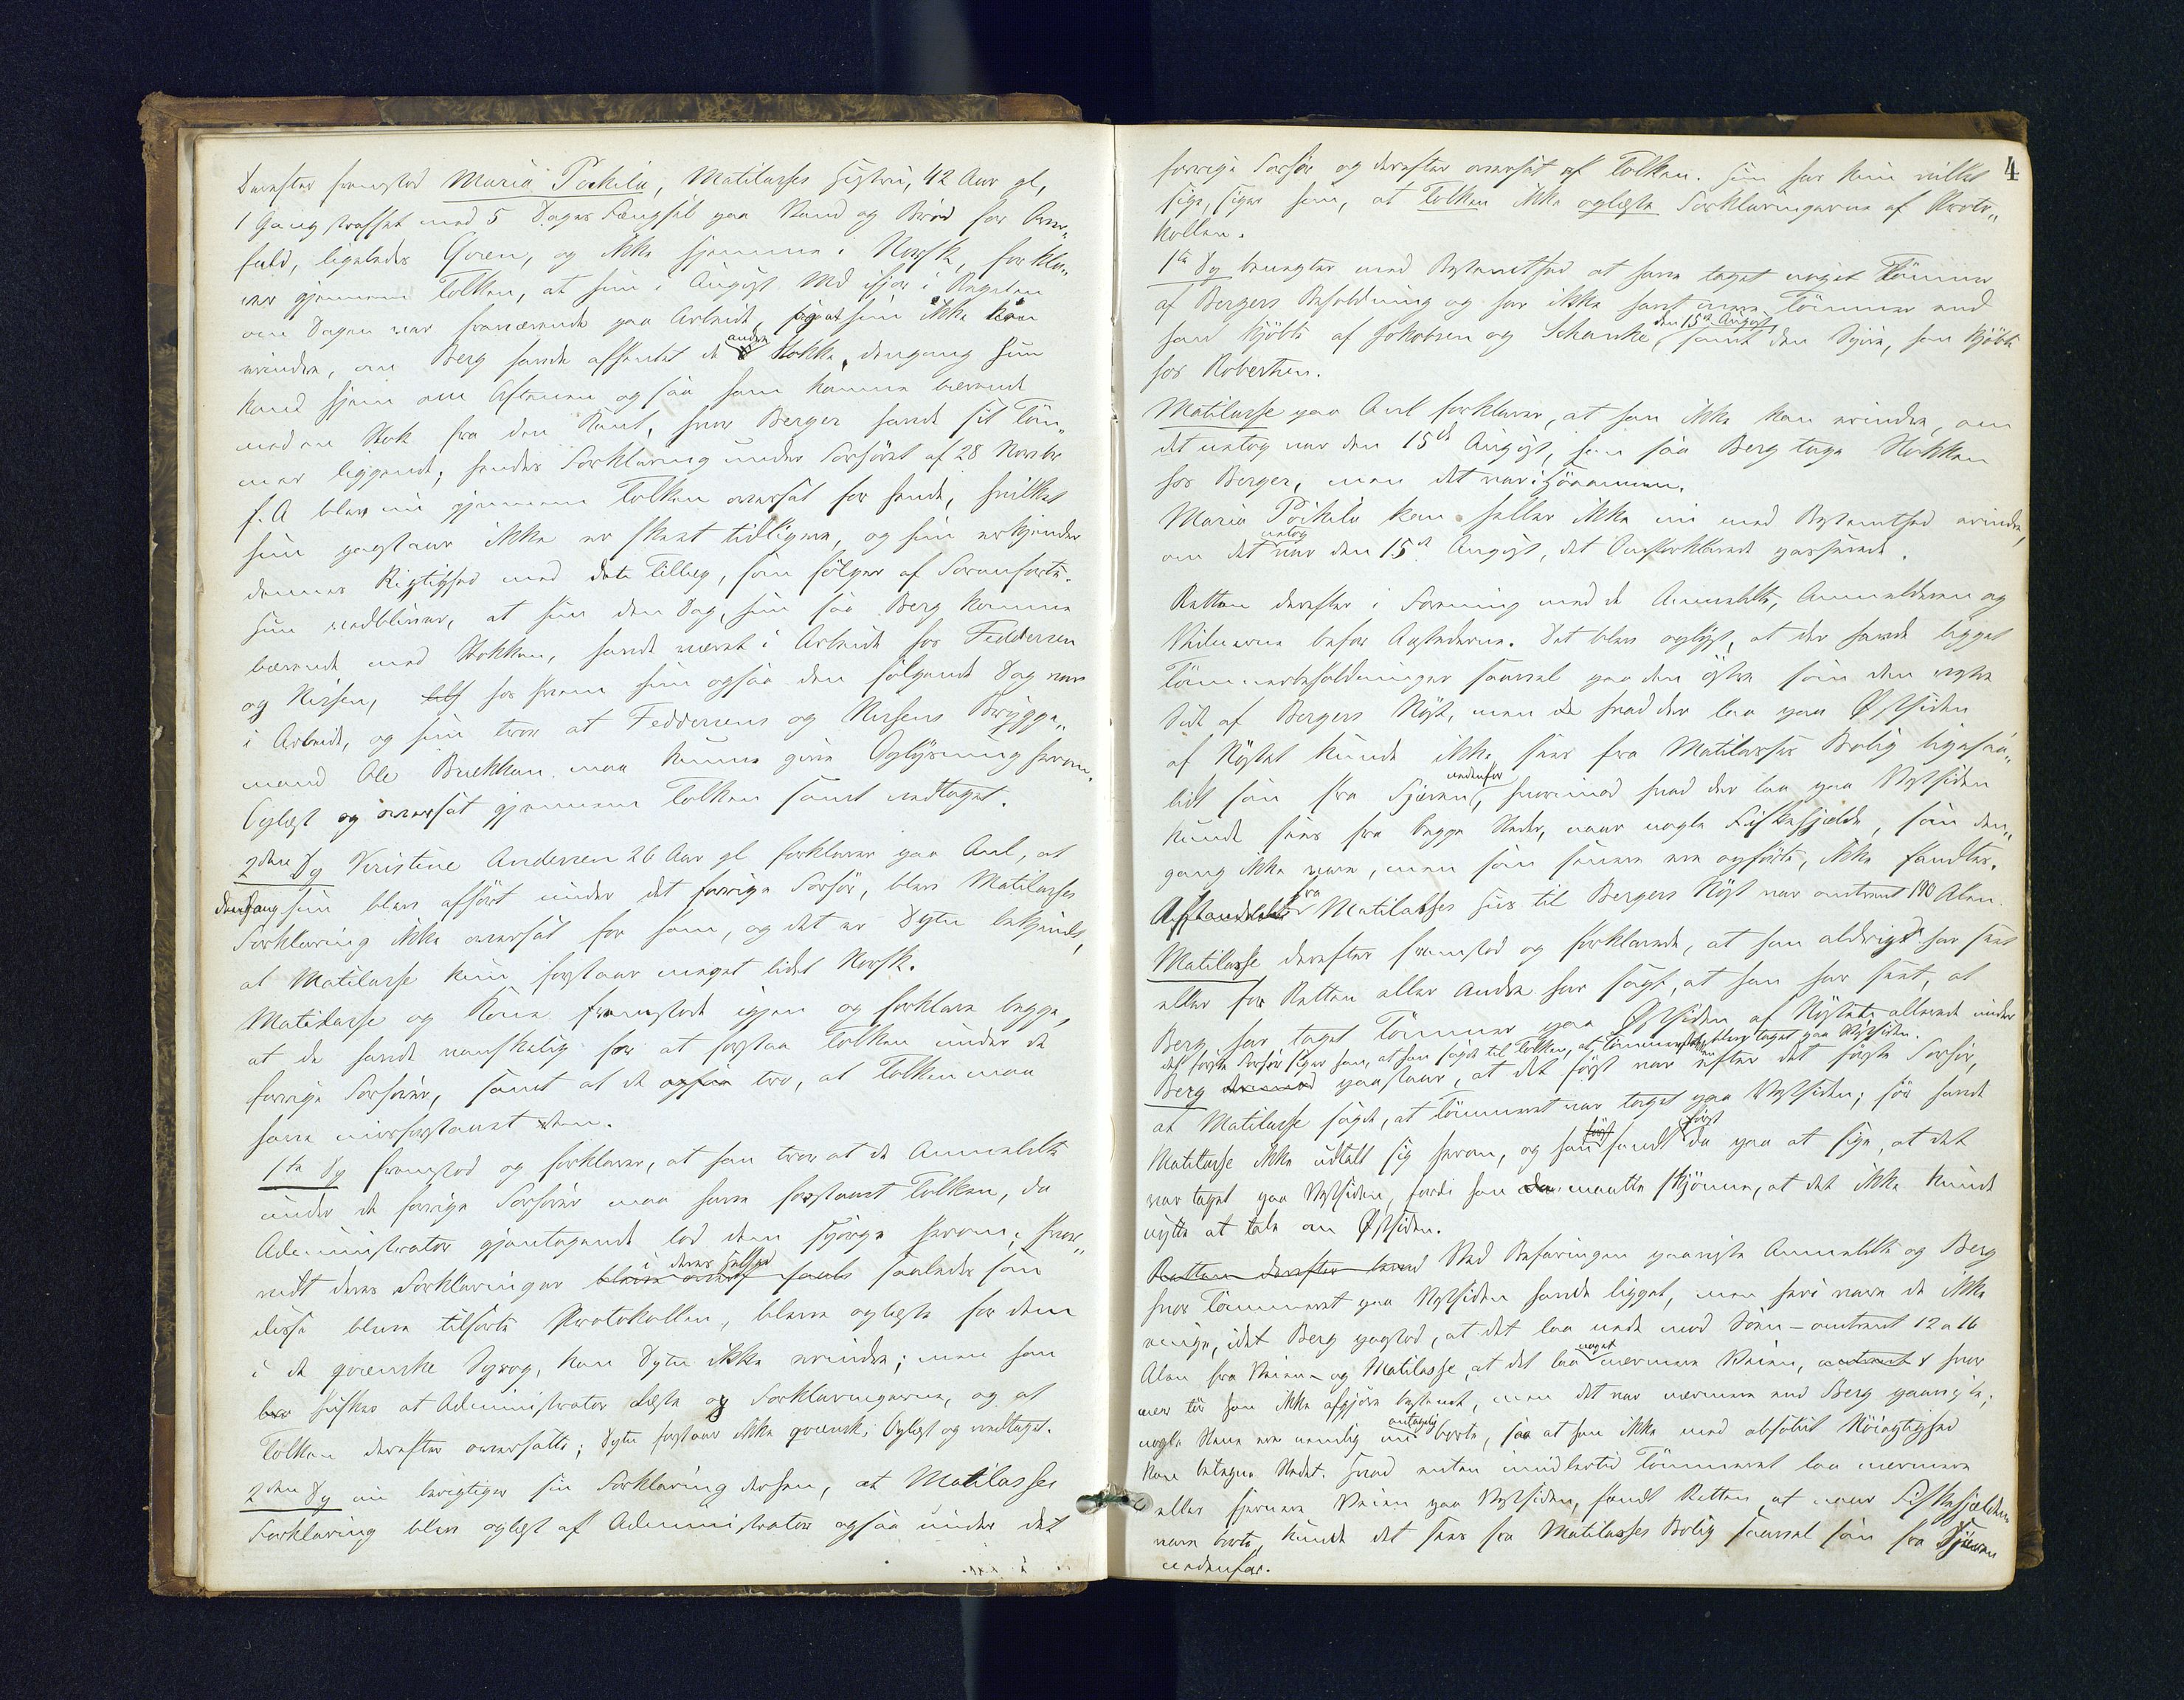 Derefter fremstod Maria Poikila, Matilasses Hustru, 42 Aar gl,
1 Gang straffet med 5 Dages Fængsel paa Vand og Brød for Over-
fald, ligeledes Qven, og ikke hjemme i Norsk, forkla-
rer gjennem Tolken, at hun i August Md ifjor i Regelen
om Dagen var fraværende paa Arbeide, og at hun ikke kan
erindre, om Berg havde afhentet de andre Stokke, dengang hun
kom hjem om Aftenen og saa ham komme bærende
med en Stok fra den Kant, hvor Berger havde sit Tøm-
mer liggende; hendes Forklaring under Forhøret af 28 Novbr
f. A blev nu gjennem Tolken oversat for hende, hvilket
hun paastaar ikke er skeet tidligere, og hun erkjender
dennes Rigtighed med det Tillæg, som følger af Foranførte.
Hun vedbliver, at hun den Dag, hun saa Berg komme
bærende med Stokken, havde været i Arbeide hos Feddersen
og Nissen, hos hvem hun ogsaa den følgende Dag var
i Arbeide, og hun tror at Feddersens og Nissens Brygge-
mand Ole Brekkan maa kunne give Oplysning herom.
Oplæst og oversat gjennem Tolken samt vedtaget.
2den Vd Kristine Andersen 26 Aar gl forklarer paa Anl, at
dengang hun blev afhørt under det forrige Forhør, blev Matilasses
Forklaring ikke oversat for ham, og det er Vdtn bekjendt,
at Matilasse kun forstaar meget lidet Norsk.
Matilasse og Kone fremstod igjen og forklare begge,
at de havde vanskelig for at forstaa Tolken under de
forrige Forhører, samt at de ogsaa tro, at Tolken maa
have misforstaaet dem.
1ste Vd fremstod og forklarer, at han tror at de Anmeldte
under de forrige Forhører maa have forstaaet Tolken, da
Administrator gjentagende lod dem spørge herom; hvor-
vidt deres Forklaringer i deres Helhed saaledes som
disse bleve tilførte Protokollen, bleve oplæste for dem
i de qvænske Sprog, kan Vdtn ikke erindre; men han
husker at Administrator læste op Forklaringerne, og at
Tolken derefter oversatte; Vdtn forstaar ikke qvænsk. Oplæst og vedtaget.
2den Vd nu berigtiger sin Forklaring derhen, at Matilasses
Forklaring blev oplæst af Administrator ogsaa under det
4
forrige Forhør og derefter oversat af Tolken. Hun har kun villet
sige, siger hun, at Tolken ikke oplæste Forklaringerne af Proto-
kollen.
1ste Vd benægter med Bestemthed at have taget noget Tømmer
af Bergers Beholdning og har ikke havt mere Tømmer end
han kjøbte af Jakobsen og Schanke, den 15de August, samt den Spire, han kjøbte
hos Robertsen.
Matilasse paa Anl forklarer, at han ikke kan erindre, om
det netop var den 15de August, han saa Berg tage Stokken
hos Berger, men det var i Høaannen.
Maria Poikila kan heller ikke nu med Bestemthed erindre,
om det netop var den 15de August, det Omforklarede passerede.
Retten derefter i Forening med de Anmeldte, Anmelderen og
Vidnerne befor Aastederne. Det blev oplyst, at der havde ligget
Tømmerbeholdninger saavel paa den østre som den vestre
Side af Bergers Nøst, men hvad der laa paa Østsiden
af Nøstet kunde ikke sees fra Matilasses Bolig ligesaa-
lidt som fra Fjæren nedenfor, hvorimod hvad der laa paa Vestsiden
kunde sees fra begge Steder, naar nogle Fiskehjelde, som den-
gang ikke vare, men som senere ere opførte, ikke fandtes.
Afstanden fra Matilasses Hus til Bergers Nøst var omtrent 190 Alen.
Matilasse derefter fremstod og forklarede, at han aldrig har seet
eller for Retten eller Andre har sagt, at han har seet, at
Berg har taget Tømmer paa Østsiden af Nøstet, allerede under
det første Forhør siger han, at han sagde til Tolken, at Tømmerstokken blev taget paa Vestsiden.
Berg paastaar, at det først var efter det første Forhør,
at Matilasse sagde, at Tømmeret var taget paa Vestsiden; før havde
Matilasse ikke udtalt sig herom, og han fandt først da paa at sige, at det
var taget paa Vestsiden, fordi han maatte skjønne, at det ikke kunde
nytte at tale om Østsiden.
Retten derefter Ved Befaringen paaviste Anmeldte og Berg
hvor Tømmeret paa Vestsiden havde ligget, men heri vare de ikke
enige, idet Berg paastod, at det laa nede mod Søen – omtrent 12 a 16
Alen fra Veien – og Matilasse, at det laa noget nærmere Veien, hvor
nær tør han ikke afgjøre bestemt, men det var nærmere end Berg paaviste,
nogle Stene ere nemlig nu antagelig borte, saa at han ikke med absolut Nøiagtighed
kan betegne Stedet. Hvad enten imidlertid Tømmeret laa nærmere
eller fjernere Veien paa Vestsiden, fandt Retten, at naar Fiskehjeldene
vare borte, kunde det sees fra Matilasses Bolig saavel som fra Fjæren
nedenfor.